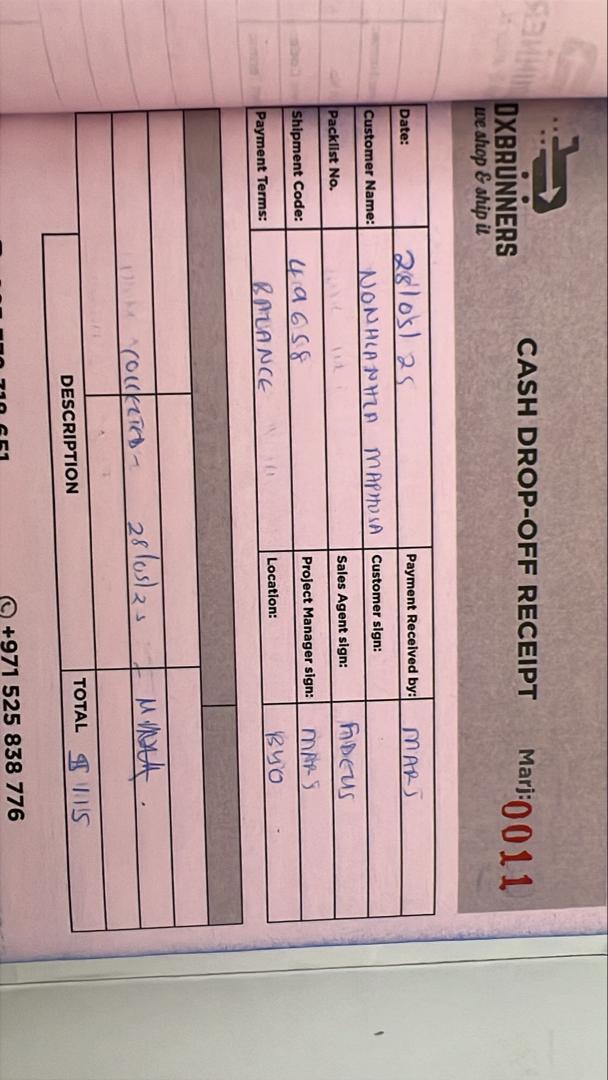 DXBRUNNERS
we shop & ship it
CASH DROP-OFF RECEIPT
Marj: 0011
Date: 28/05/25 Payment Received by: MARS
Customer Name: NONHLANHLA MAPHOSA Customer sign:
Packlist No. Sales Agent sign: FADEUS
Shipment Code: 49658 Project Manager sign: MARS
Payment Terms: BALANCE Location: BYO
COLLECTED - 28/05/25 -
DESCRIPTION TOTAL $ 1115
+971 525 838 776